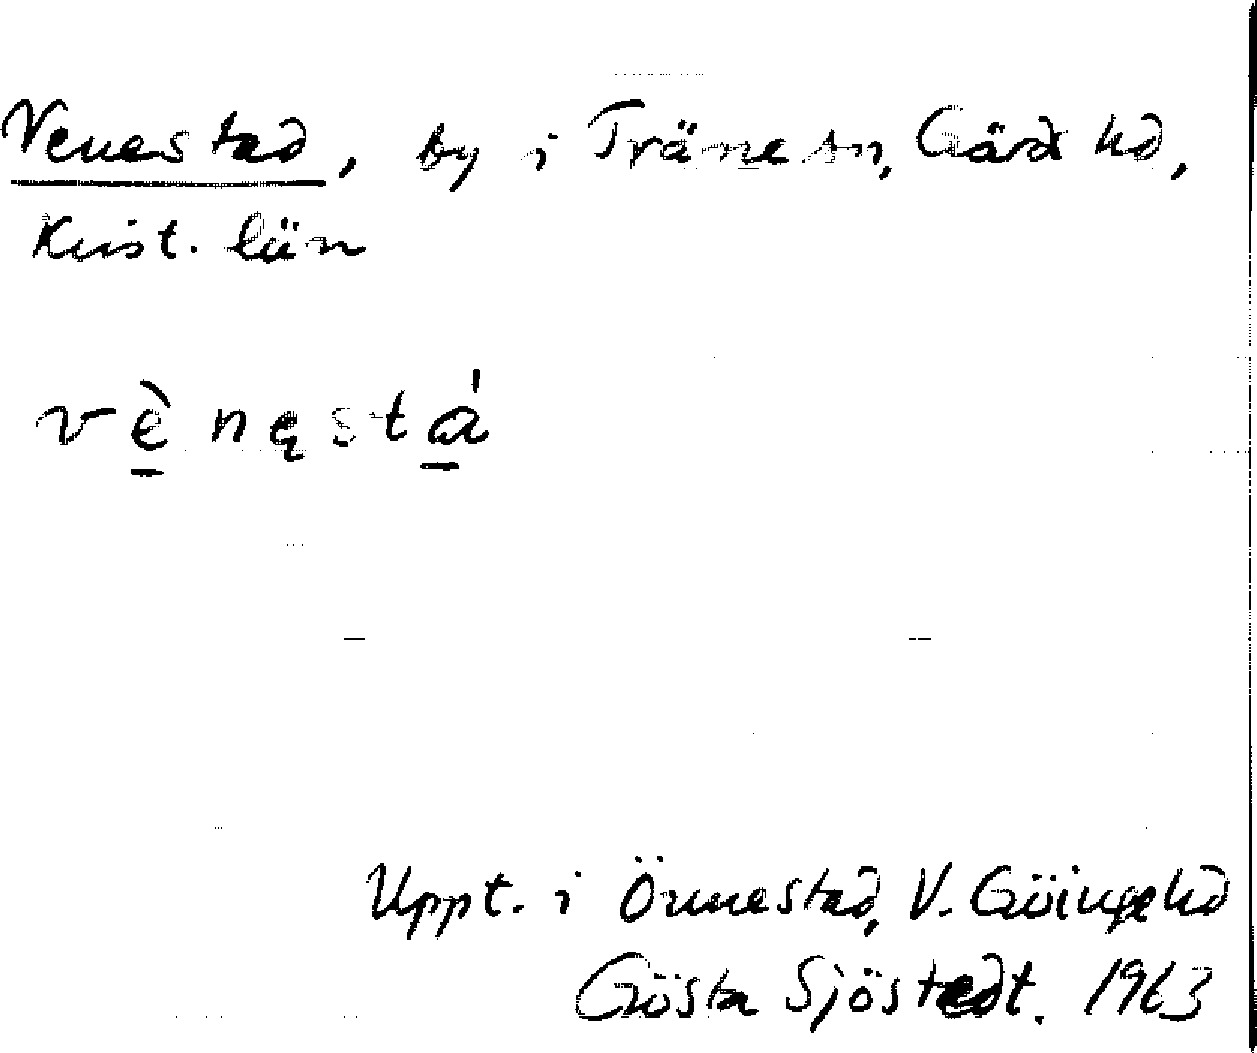 Venestad, by i Träne sn, Gärds hd,
Krist. län
vènęstá
Uppt. i Önnestad, V. Göinge hd
Gösta Sjöstedt. 1963